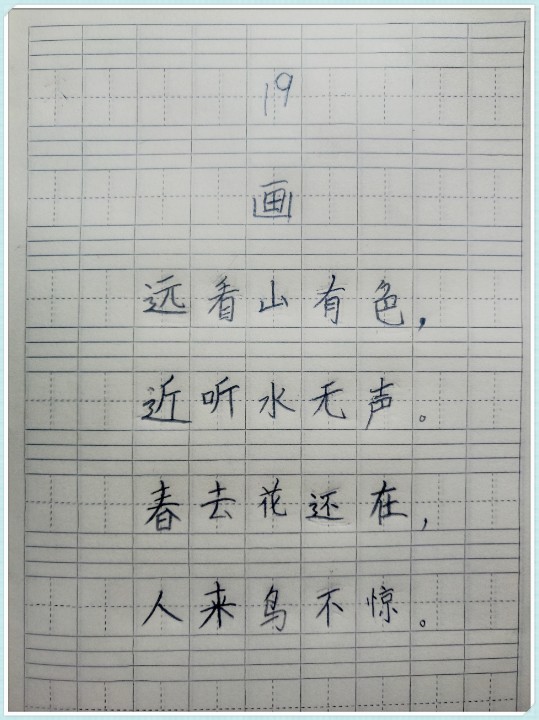 19
画
远看山有色，
近听水无声。
春去花还在，
人来鸟不惊。